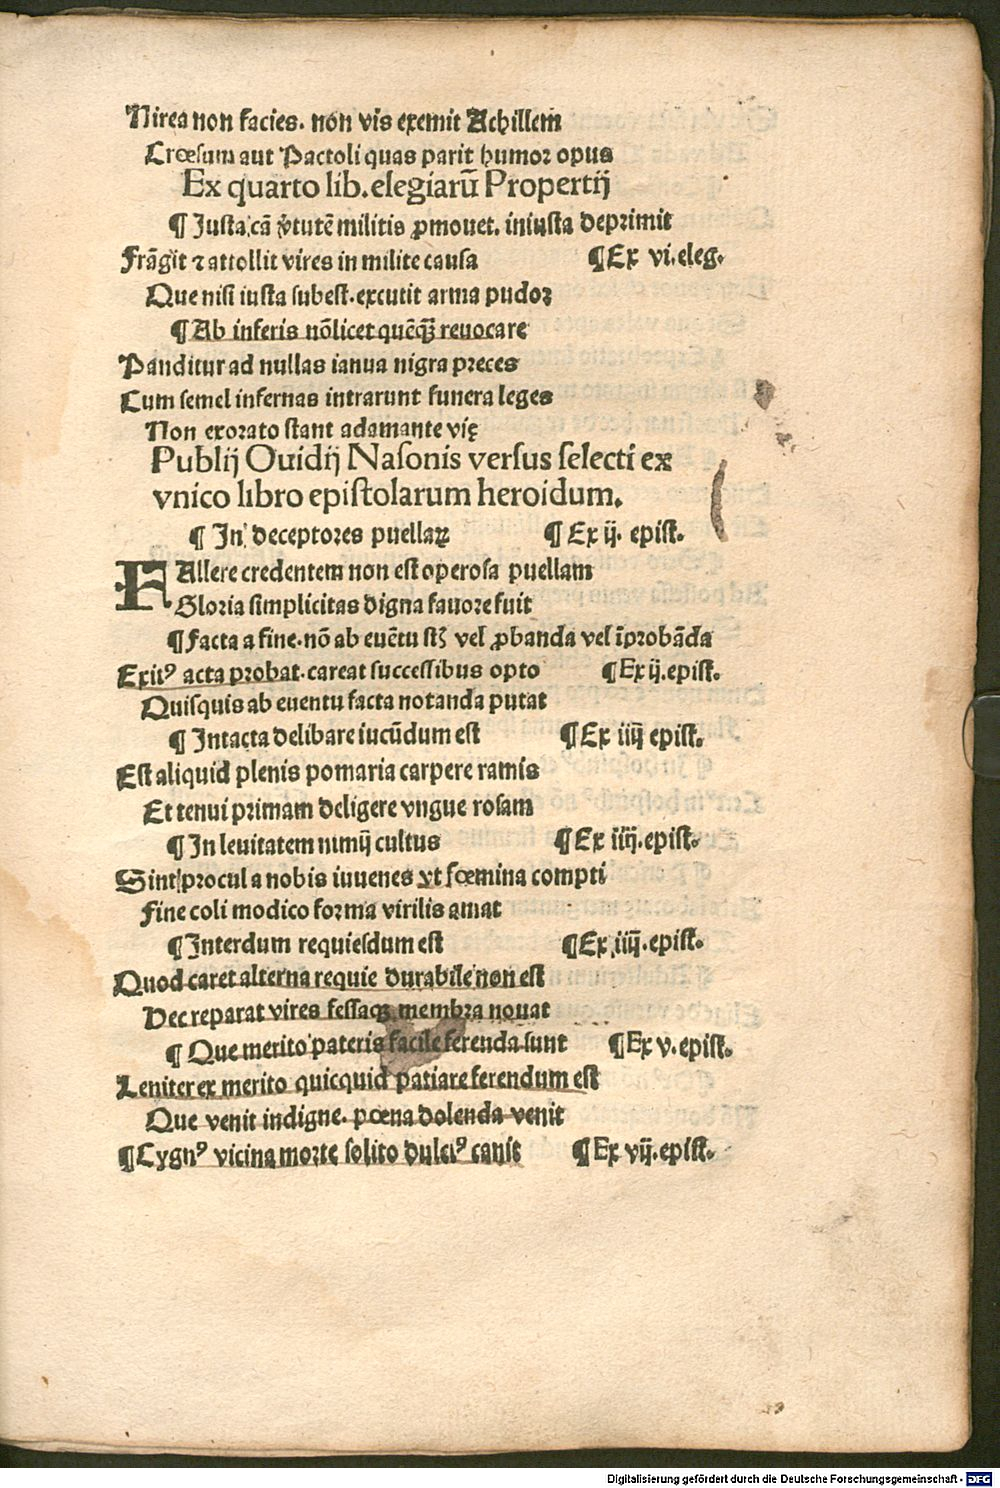 Nirea non facies. non vis exemit Achillem
Crœsum aut Pactoli quas parit humor opus
Ex quarto lib. elegiarū Propertij
¶ Justa cā v̓tutē militis ꝓmouet. iniusta deprimit
Frāgit ⁊ attollit vires in milite causa ¶ Ex vi. eleg.
Que nisi iusta subest. excutit arma pudor
¶ Ab inferis nō licet quēqꝫ reuocare
Panditur ad nullas ianua nigra preces
Cum semel infernas intrarunt funera leges
Non exorato stant adamante vię
Publij Ouidij Nasonis versus selecti ex
vnico libro epistolarum heroidum.
¶ In deceptores puellaꝝ ¶ Ex ij. epist.
FAllere credentem non est operosa puellam
Gloria simplicitas digna fauore fuit
¶ Facta a fine. nō ab euētu sūt vel ꝓbanda vel īprobāda
Exitꝰ acta probat. careat successibus opto ¶ Ex ij. epist.
Quisquis ab euentu facta notanda putat
¶ Intacta delibare iucūdum est ¶ Ex iiij epist.
Est aliquid plenis pomaria carpere ramis
Et tenui primam deligere vngue rosam
¶ In leuitatem nimij cultus ¶ Ex iiij. epist.
Sint procul a nobis iuuenes vt fœmina compti
Fine coli modico forma virilis amat
¶ Interdum requiesdum est ¶ Ex iiij. epist.
Quod caret alterna requie durabile non est
Hec reparat vires fessaqꝫ membra nouat
¶ Que merito pateris facile ferenda sunt ¶ Ex v. epist.
Leniter ex merito quicquid patiare ferendum est
Que venit indigne. pœna dolenda venit
¶ Cygnꝰ vicina morte solito dulciꝰ canit ¶ Ex vij. epist.
Digitalisierung gefördert durch die Deutsche Forschungsgemeinschaft - DFG